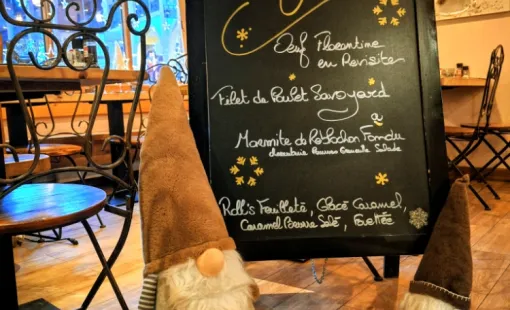 Oeuf Florentine
en Revisite
Filet de Poulet Savoyard
Marmite de Reblochon Fondu
Salade
Feuilleté, Glace Caramel,
Caramel Beurre Salé,